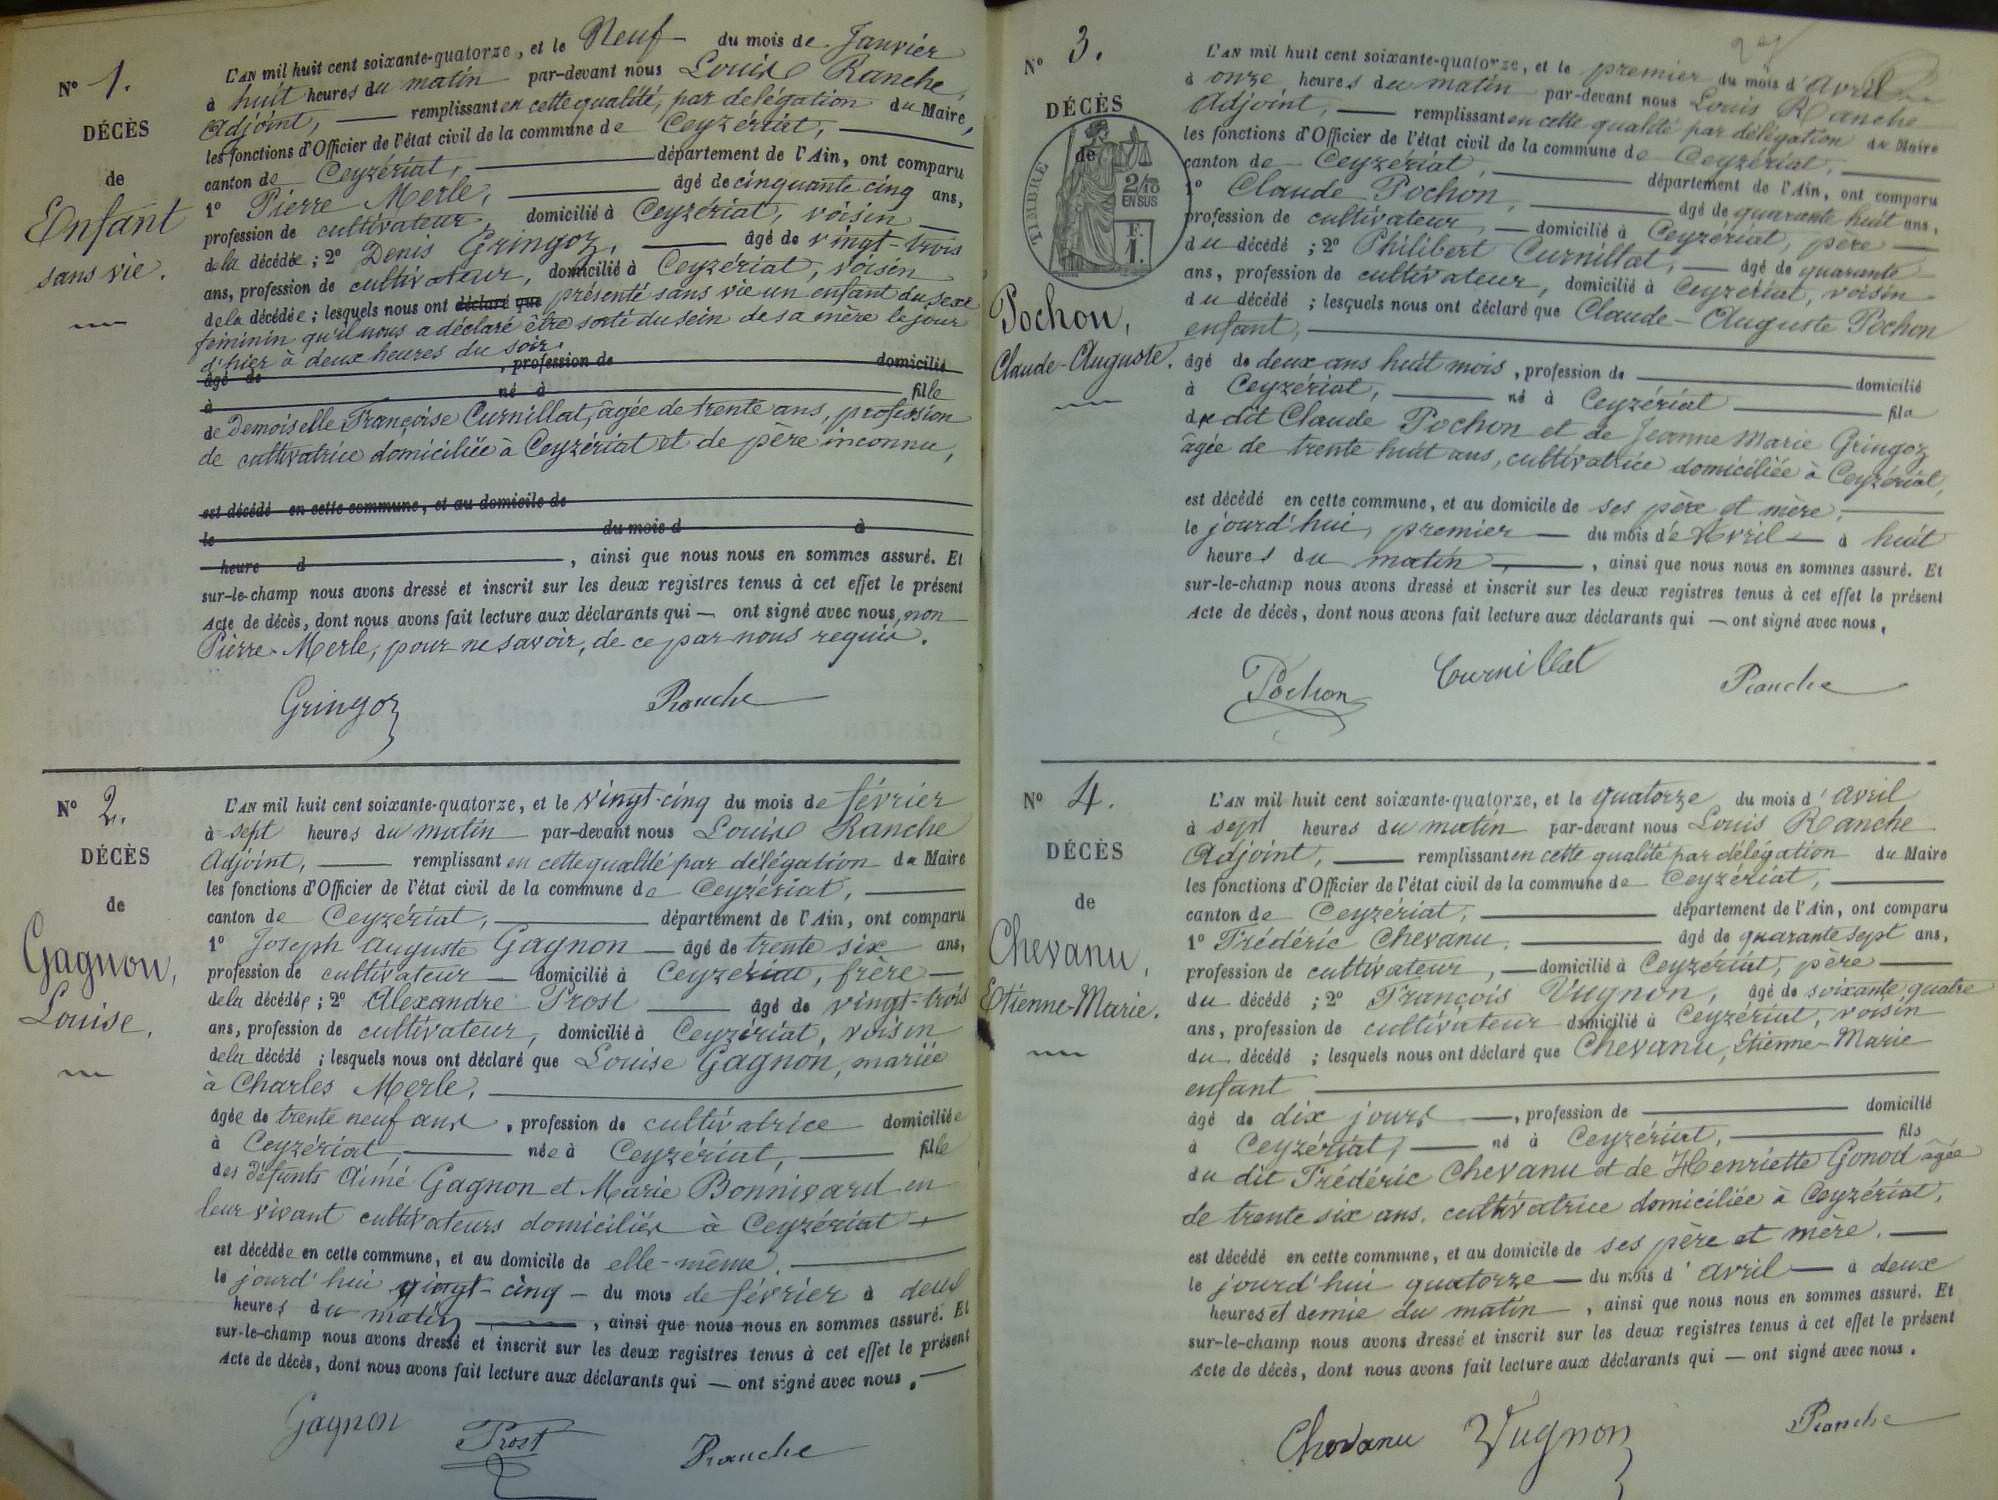 N° 1.
DÉCÈS
de
Enfant
sans vie.
L'AN mil huit cent soixante-quatorze, et le Neuf du mois de Janvier
à huit heures du matin par-devant nous Louis Ranche,
Adjoint, remplissant en cette qualité, par délégation du Maire,
les fonctions d'Officier de l'état civil de la commune de Ceyzériat,
canton de Ceyzériat, département de l'Ain, ont comparu
1° Pierre Merle, âgé de cinquante cinq ans,
profession de cultivateur, domicilié à Ceyzériat, voisin
de la décédée ; 2° Denis Gringoz, âgé de vingt-trois
ans, profession de cultivateur, domicilié à Ceyzériat, voisin
de la décédée ; lesquels nous ont déclaré que présenté sans vie un enfant du sexe
feminin qu'il nous a déclaré être sorti du sein de sa mère le jour
d'hier à deux heures du soir.
âgé de , profession de domicilié
à né à fille
de Demoiselle Françoise Curnillat, âgée de trente ans, profession
de cultivatrice domiciliée à Ceyzériat et de père inconnu,
est décédé en cette commune, et au domicile de
le du mois d à
heure d , ainsi que nous nous en sommes assuré. Et
sur-le-champ nous avons dressé et inscrit sur les deux registres tenus à cet effet le présent
Acte de décès, dont nous avons fait lecture aux déclarants qui — ont signé avec nous, non
Pierre Merle, pour ne savoir, de ce par nous requis.
Gringoz Ranche
N° 2.
DÉCÈS
de
Gagnon,
Louise,
L'AN mil huit cent soixante-quatorze, et le vingt-cinq du mois de février
à sept heures du matin par-devant nous Louis Ranche
Adjoint, remplissant en cette qualité par délégation du Maire
les fonctions d'Officier de l'état civil de la commune de Ceyzériat,
canton de Ceyzériat, département de l'Ain, ont comparu
1° Joseph Auguste Gagnon âgé de trente six ans,
profession de cultivateur domicilié à Ceyzériat, frère
de la décédée ; 2° Alexandre Prost âgé de vingt-trois
ans, profession de cultivateur, domicilié à Ceyzériat, voisin
de la décédé ; lesquels nous ont déclaré que Louise Gagnon, mariée
à Charles Merle,
âgée de trente neuf ans, profession de cultivatrice domiciliée
à Ceyzériat, née à Ceyzériat, fille
des défunts Aimé Gagnon et Marie Bonnivard en
leur vivant cultivateurs domiciliés à Ceyzériat
est décédée en cette commune, et au domicile de elle-même.
le jourd'hui vingt-cinq du mois de février à deux
heures du matin , ainsi que nous nous en sommes assuré. Et
sur-le-champ nous avons dressé et inscrit sur les deux registres tenus à cet effet le présent
Acte de décès, dont nous avons fait lecture aux déclarants qui — ont signé avec nous.
Gagnon Prost Ranche
N° 3.
DÉCÈS
de
TIMBRE
2/10
EN SUS
F.
1.
Pochon,
Claude-Auguste.
L'AN mil huit cent soixante-quatorze, et le premier du mois d'avril
à onze heures du matin par-devant nous Louis Ranche
Adjoint, remplissant en cette qualité par délégation du Maire
les fonctions d'Officier de l'état civil de la commune de Ceyzériat,
canton de Ceyzériat, département de l'Ain, ont comparu
1° Claude Pochon, âgé de quarante huit ans,
profession de cultivateur, domicilié à Ceyzériat, père
du décédé ; 2° Philibert Curnillat, âgé de quarante
ans, profession de cultivateur, domicilié à Ceyzériat, voisin
du décédé ; lesquels nous ont déclaré que Claude-Auguste Pochon
enfant,
âgé de deux ans huit mois, profession de domicilié
à Ceyzériat, né à Ceyzériat fils
du dit Claude Pochon et de Jeanne Marie Gringoz
âgée de trente huit ans, cultivatrice domiciliée à Ceyzériat,
est décédé en cette commune, et au domicile de ses père et mère,
le jourd'hui, premier du mois de Avril à huit
heures du matin , ainsi que nous nous en sommes assuré. Et
sur-le-champ nous avons dressé et inscrit sur les deux registres tenus à cet effet le présent
Acte de décès, dont nous avons fait lecture aux déclarants qui — ont signé avec nous.
Pochon Curnillat Ranche
N° 4.
DÉCÈS
de
Chevanu,
Etienne-Marie.
L'AN mil huit cent soixante-quatorze, et le quatorze du mois d'avril
à sept heures du matin par-devant nous Louis Ranche
Adjoint, remplissant en cette qualité par délégation du Maire
les fonctions d'Officier de l'état civil de la commune de Ceyzériat,
canton de Ceyzériat, département de l'Ain, ont comparu
1° Frédéric Chevanu, âgé de quarante sept ans,
profession de cultivateur, domicilié à Ceyzériat, père
du décédé ; 2° François Vugnon, âgé de soixante quatre
ans, profession de cultivateur domicilié à Ceyzériat, voisin
du décédé ; lesquels nous ont déclaré que Chevanu, Etienne-Marie
enfant
âgé de dix jours , profession de domicilié
à Ceyzériat, né à Ceyzériat, fils
du dit Frédéric Chevanu et de Henriette Gonod âgée
de trente six ans, cultivatrice domiciliée à Ceyzériat,
est décédé en cette commune, et au domicile de ses père et mère.
le jourd'hui quatorze du mois d'avril à deux
heures et demie du matin , ainsi que nous nous en sommes assuré. Et
sur-le-champ nous avons dressé et inscrit sur les deux registres tenus à cet effet le présent
Acte de décès, dont nous avons fait lecture aux déclarants qui — ont signé avec nous.
Chevanu Vugnon Ranche